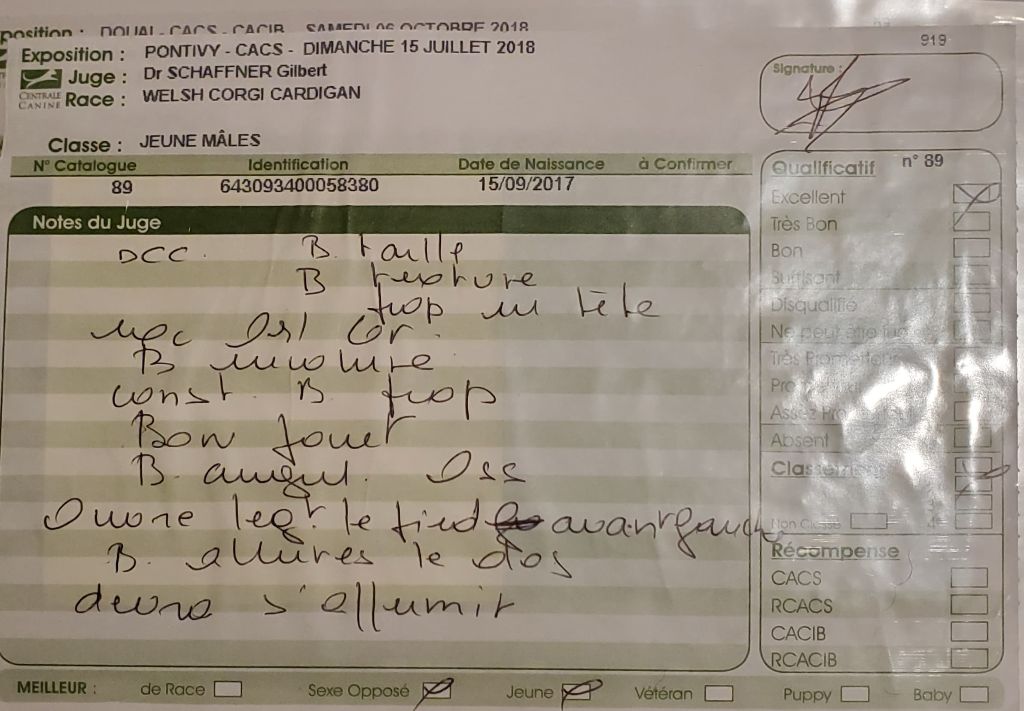 DOUAI - CACS - CACIB SAMEDI 06 OCTOBRE 2018
919
Exposition : PONTIVY - CACS - DIMANCHE 15 JUILLET 2018
Juge : Dr SCHAFFNER Gilbert
CENTRALE CANINE
Race : WELSH CORGI CARDIGAN
Signature :
Classe : JEUNE MÂLES
N° Catalogue Identification Date de Naissance à Confirmer
89 643093400058380 15/09/2017
Notes du Juge
DCC. B. taille
B texture
trop en tête
B encolure
const. B. trop
Bon fouet
B. angul. Oss
Ouvre legt. le pied avant gauche
B. allures le dos
devra s'affirmir
Qualificatif n° 89
Excellent
Très Bon
Bon
Suffisant
Disqualifié
Ne peut être jugé
Très Prometteur
Assez Prometteur
Absent
Non Classé
Récompense
CACS
RCACS
CACIB
RCACIB
MEILLEUR : de Race Sexe Opposé Jeune Vétéran Puppy Baby